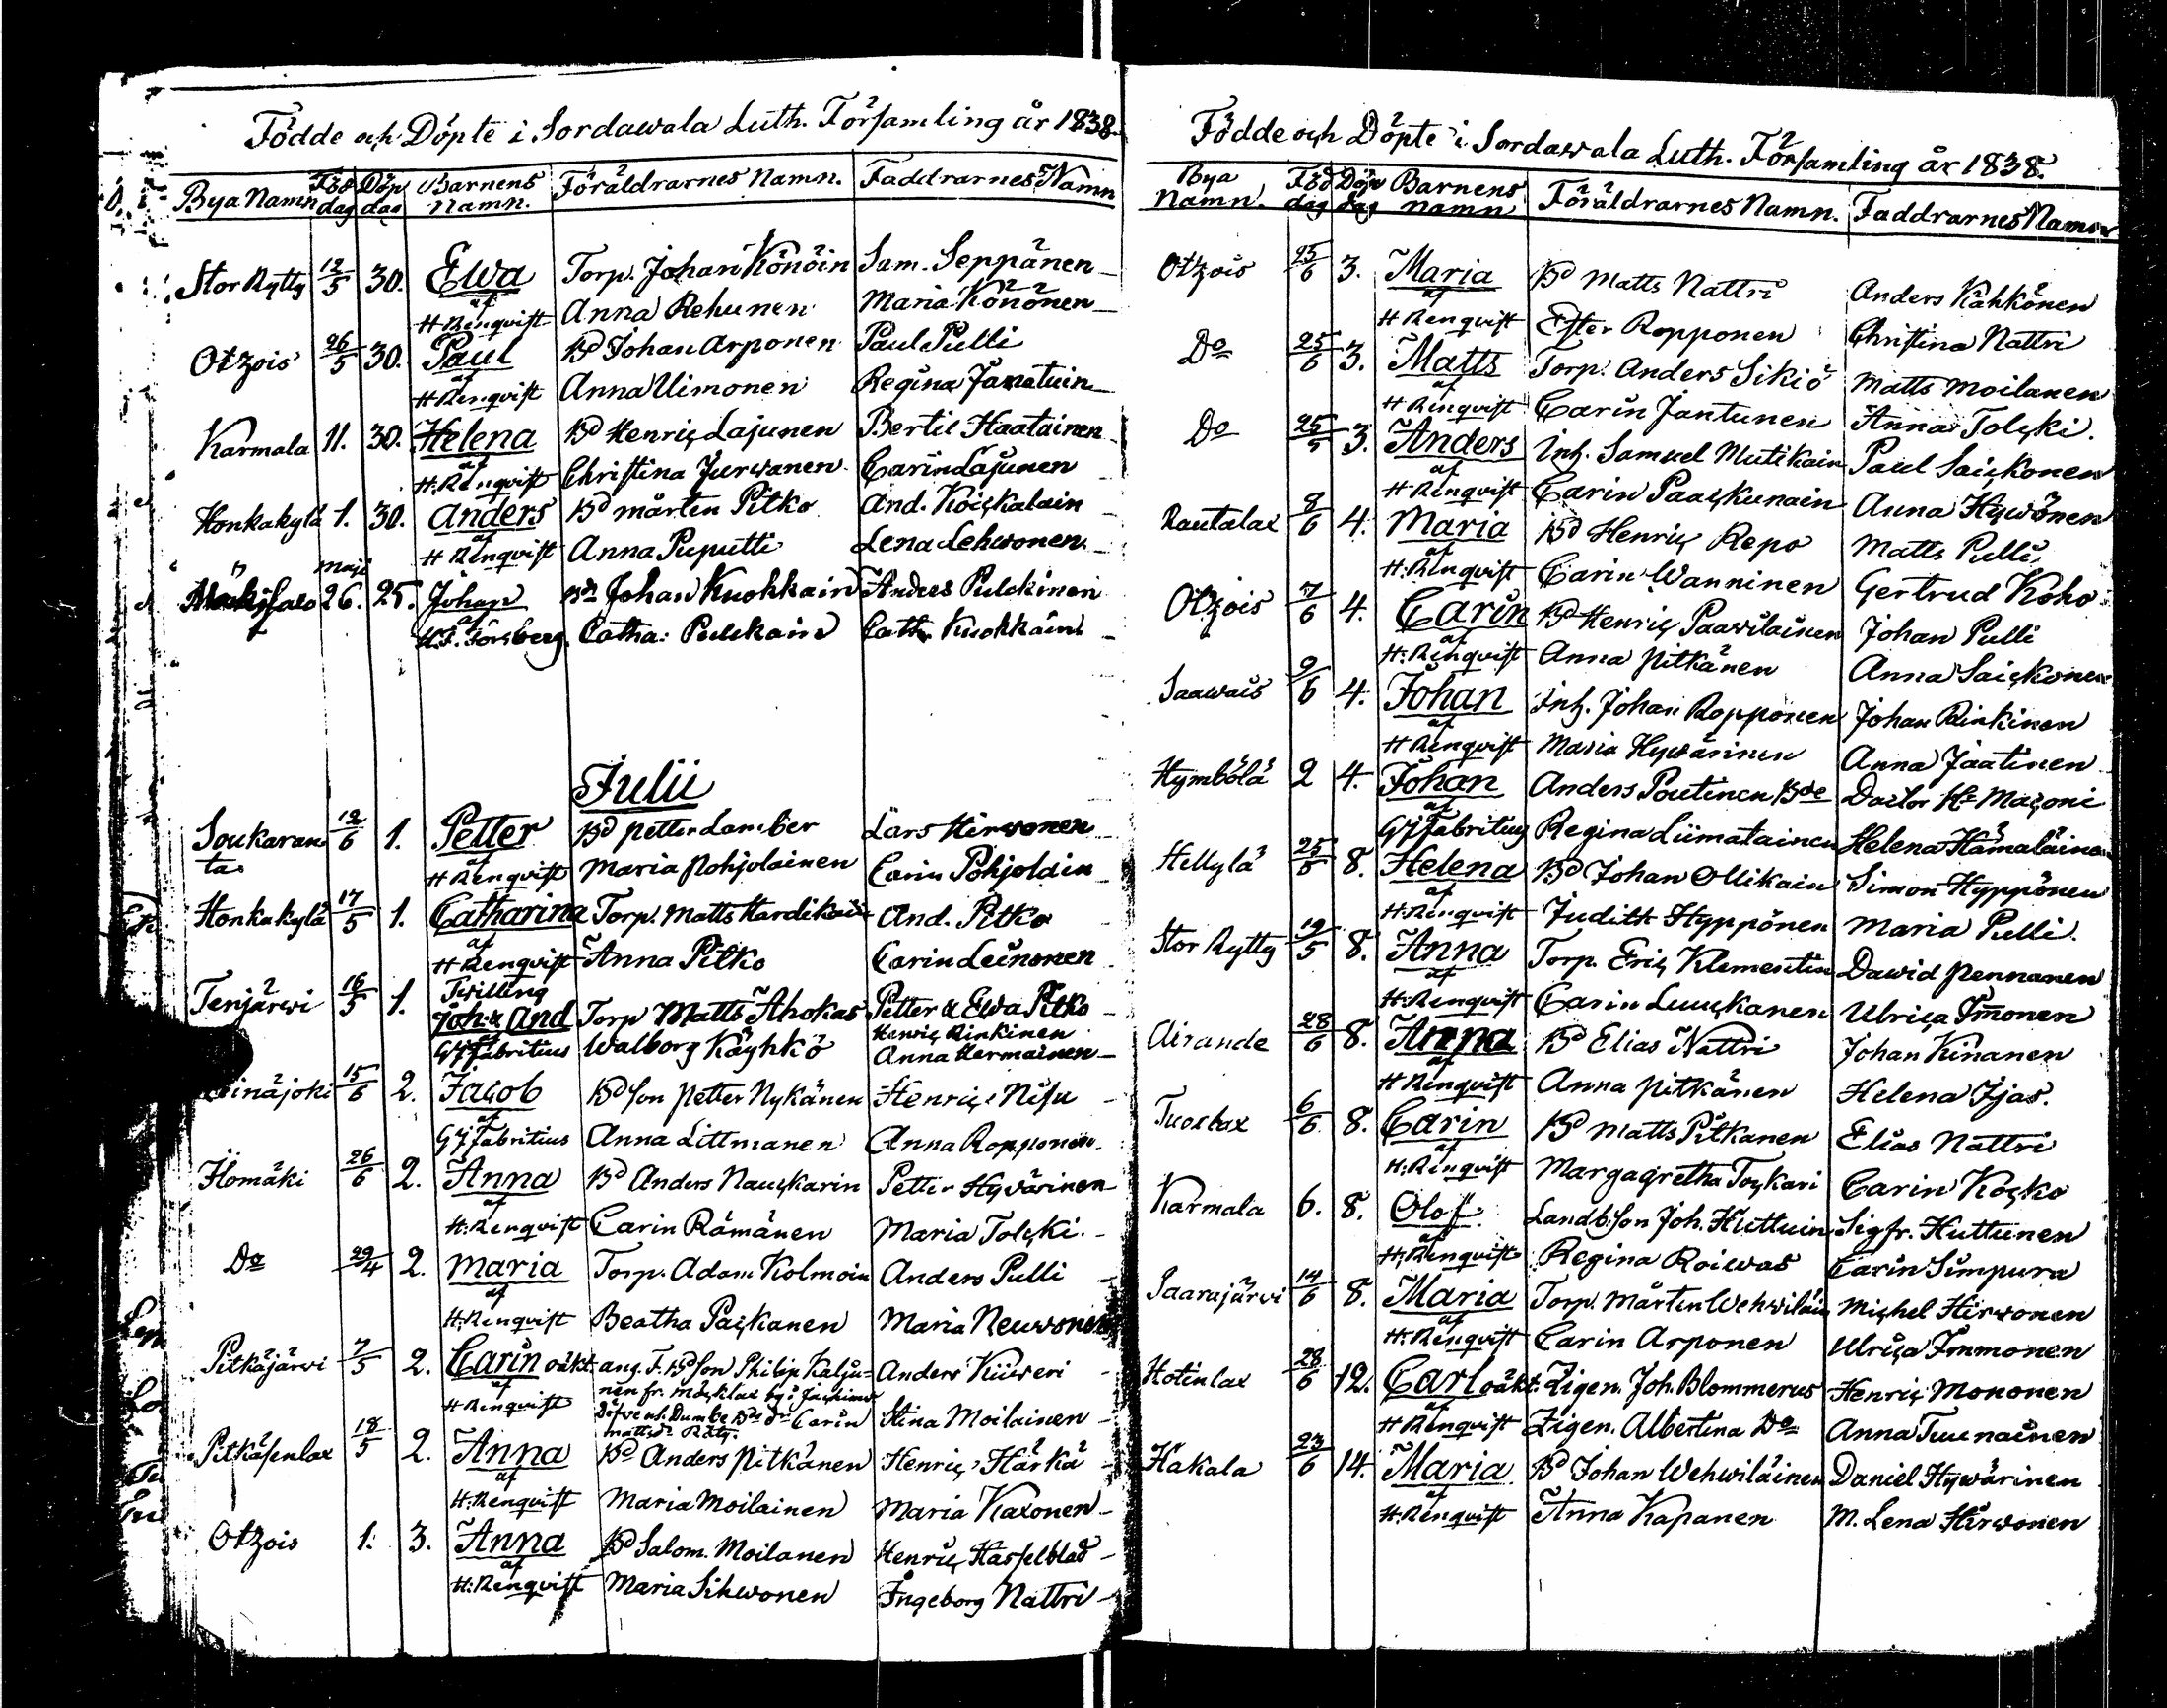 Födde och Döpte i Sordawala Luth. Församling år 1838.
Bya Namn Föd dag Döp dag Barnens Namn. Föräldrarnes Namn. Faddrarnes Namn
Stor Rytty 12/5 30. Ewa Torp. Johan Könöin Sam. Seppänen
af H Renqvist Anna Rehunen Maria Könönen
Otzois 26/5 30. Paul Bd Johan Arponen Paul Pulli
af H Renqvist Anna Uimonen Regina Jamatuin
Karmala 11. 30. Helena Bd Henric Lajunen Bertil Haatainen
af H. Renqvist Christina Jurwanen Carin Lajunen
Honkakylä 1. 30. Anders Bd Mårten Pitko And. Koickalain
af H Renqvist Anna Puputti Lena Lehwonen
maji
26. 25. Johan Bd Johan Kuokkain Anders Pulckinen
af H.J. Forsberg. Catha: Pulckain Cath. Kuokkain
Julii
Soukaranta 12/6 1. Petter Bd Petter Lamber Lars Hirwonen
af H Renqvist Maria Pohjolainen Carin Pohjolain
Honkakylä 17/5 1. Catharina Torp. Matts Hardikain And. Pitko
af H Renqvist Anna Pitko Carin Leinonen
Tenjärwi 16/5 1. Twilling Joh. & And Torp Matts Ahokas Petter & Ewa Pitko
af G J Fabritius Walborg Käyhkö Henric Rinkinen Anna Hermainen
inäjoki 15/6 2. Jacob Bd son Petter Nykänen Henric Nisu
af G J Fabritius Anna Littmanen Anna Ropponen
Ilomäki 26/6 2. Anna Bd Anders Nauckarin Petter Hyvärinen
af H. Renqvist Carin Rämänen Maria Tolcki.
Do 29/4 2. Maria Torp. Adam Kolmoin Anders Pulli
af H. Renqvist Beatha Packanen Maria Neuwonen
Pitkäjärwi 7/5 2. Carin oäkt. ang. F. Bd son Philip Kalju- Anders Kiiweri
af H Renqvist nen fr. Bde dr Carin Stina Moilainen
Pitkäsenlax 18/5 2. Anna Bd Anders Pitkänen Henric Härkä
af H. Renqvist Maria Moilainen Maria Kaxonen
Otzois 1. 3. Anna Bd Salom. Moilanen Henric Hasselblad
af H. Renqvist Maria Sihwonen Ingeborg Nattri
Födde och Döpte i Sordawala Luth. Församling år 1838.
Bya Namn. Föd dag Döp dag Barnens Namn Föräldrarnes Namn. Faddrarnes Namn
Otzois 25/6 3. Maria Bd Matts Nattri Anders Kähkönen
af H Renqvist Ester Ropponen Christina Nattri
Do 25/6 3. Matts Torp. Anders Sikiö Matts Moilanen
af H Renqvist Carin Jantunen Anna Tolcki.
Do 25/5 3. Anders Inh. Samuel Mutikain Paul Saickonen
af H Renqvist Carin Paackunain Anna Hywönen
Rautalax 8/6 4. Maria Bd Henric Repo Matts Pulli
af H. Renqvist Carin Wanninen Gertrud Koho
Otzois 7/6 4. Carin Bd Henric Paawilainen Johan Pulli
af H. Renqvist Anna Pitkänen Anna Saickonen
Saawais 9/6 4. Johan Inh. Johan Ropponen Johan Rinkinen
af H Renqvist Maria Hywärinen Anna Jaatinen
Hymbölä 2 4. Johan Anders Poutinen Bde Doctor Hr Maconi
af G J Fabritius Regina Liimatainen Helena Hämäläinen
Hellylä 25/5 8. Helena Bd Johan Ollikain Simon Hyppönen
af H. Renqvist Judith Hyppönen Maria Pulli.
Stor Rytty 19/5 8. Anna Torp. Eric Klementin Dawid Pennanen
af H. Renqvist Carin Luuckanen Ulrica Im̅onen
Airande 28/6 8. Anna Bd Elias Nattri Johan Kinanen
af H Renqvist Anna Pitkänen Helena Ijas.
Tuoslax 6/6 8. Carin Bd Matts Pitkänen Elias Nattri
af H. Renqvist Margagretha Tockari Carin Kocko
Karmala 6. 8. Olof Landb. son Joh. Huttuin Sigfr. Huttunen
af H. Renqvist Regina Roiwas Carin Simpura
Saarajärwi 14/6 8. Maria Torp. Mårten Wehwiläin Michel Hirwonen
af H. Renqvist Carin Arponen Ulrica Immonen
Hotinlax 28/6 12. Carl oäkt. Zigen. Joh. Blommerus Henric Mononen
af H Renqvist Zigen. Albertina Do Anna Tuunainen
Hakala 23/6 14. Maria Bd Johan Wehwiläinen Daniel Hywärinen
af H. Renqvist Anna Kapanen M. Lena Hirwonen